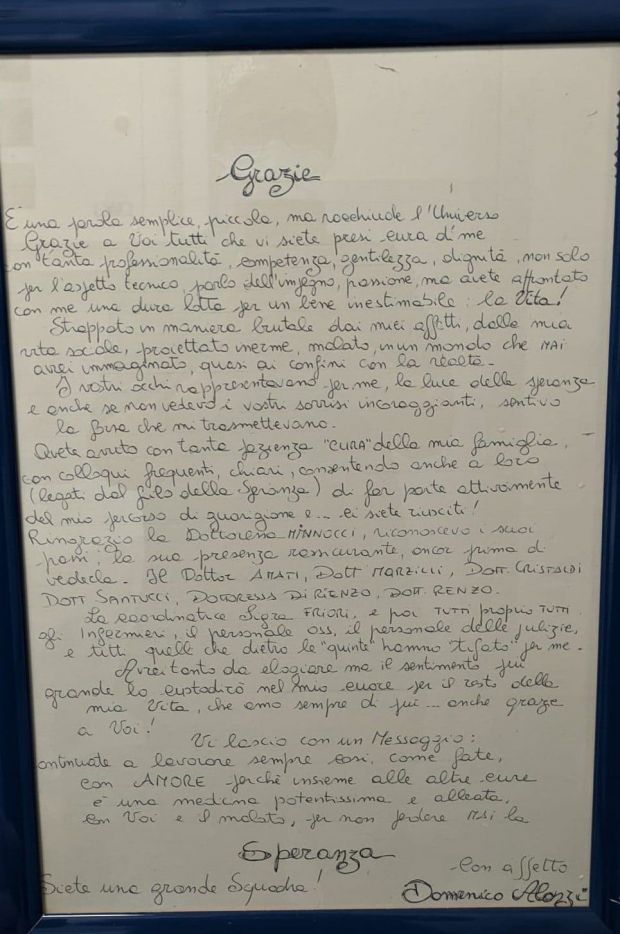 Grazie
È una parola semplice, piccola, ma racchiude l'Universo
Grazie a Voi tutti che vi siete presi cura di me
con tanta professionalità, competenza, gentilezza, dignità, non solo
per l'aspetto tecnico, parlo dell'impegno, passione, ma avete affrontato
con me una dura lotta per un bene inestimabile: la Vita!
Strappato in maniera brutale dai miei affetti, dalla mia
vita sociale, proiettato inerme, malato, in un mondo che MAI
avrei immaginato, quasi ai confini con la realtà.
I vostri occhi rappresentavano per me, la luce della speranza
e anche se non vedevo i vostri sorrisi incoraggianti, sentivo
la forza che mi trasmettevano.
Avete avuto con tanta pazienza "CURA" della mia famiglia,
con colloqui frequenti, chiari, consentendo anche a loro
(legati dal filo della Speranza) di far parte attivamente
del mio percorso di guarigione e... ci siete riusciti!
Ringrazio la Dottoressa MINNOCCI, riconoscevo i suoi
passi, la sua presenza rassicurante, ancor prima di
vederla. Il Dottor AMATI, Dott MARZILLI, DOTT. CRISTALDI
DOTT SANTUCCI, DOTTORESSA DI RIENZO, DOTT. RENZO.
La coordinatrice Sigra FRIORI, e poi TUTTI proprio TUTTI
gli Infermieri, il personale OSS, il personale delle pulizie,
e tutti quelli che dietro le "quinte" hanno "tifato" per me.
Avrei tanto da elogiare ma il sentimento più
grande lo custodirò nel mio cuore per il resto della
mia Vita, che amo sempre di più... anche grazie
a Voi!
Vi lascio con un Messaggio:
ontinuate a lavorare sempre così, come fate,
con AMORE perchè insieme alle altre cure
è una medicina potentissima e alleata,
con Voi e il malato, per non perdere MAI la
Speranza
Con affetto
Siete una grande Squadra!
Domenico